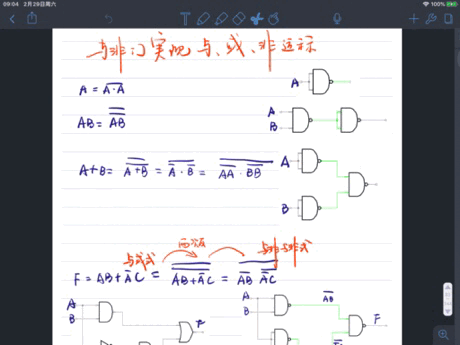 09:04 2月29日周六
100%
与非门实现与、或、非运标
A = \overline{A·A}
A
AB = \overline{\overline{AB}}
A
B
A+B = \overline{\overline{A+B}} = \overline{\overline{A}·\overline{B}} = \overline{\overline{AA}·\overline{BB}}
A
B
与或式 两次 与非与非式
F = AB + \overline{A}C = \overline{\overline{AB+\overline{A}C}} = \overline{\overline{AB} \overline{\overline{A}C}}
A
B
F
A
B
\overline{AB}
F